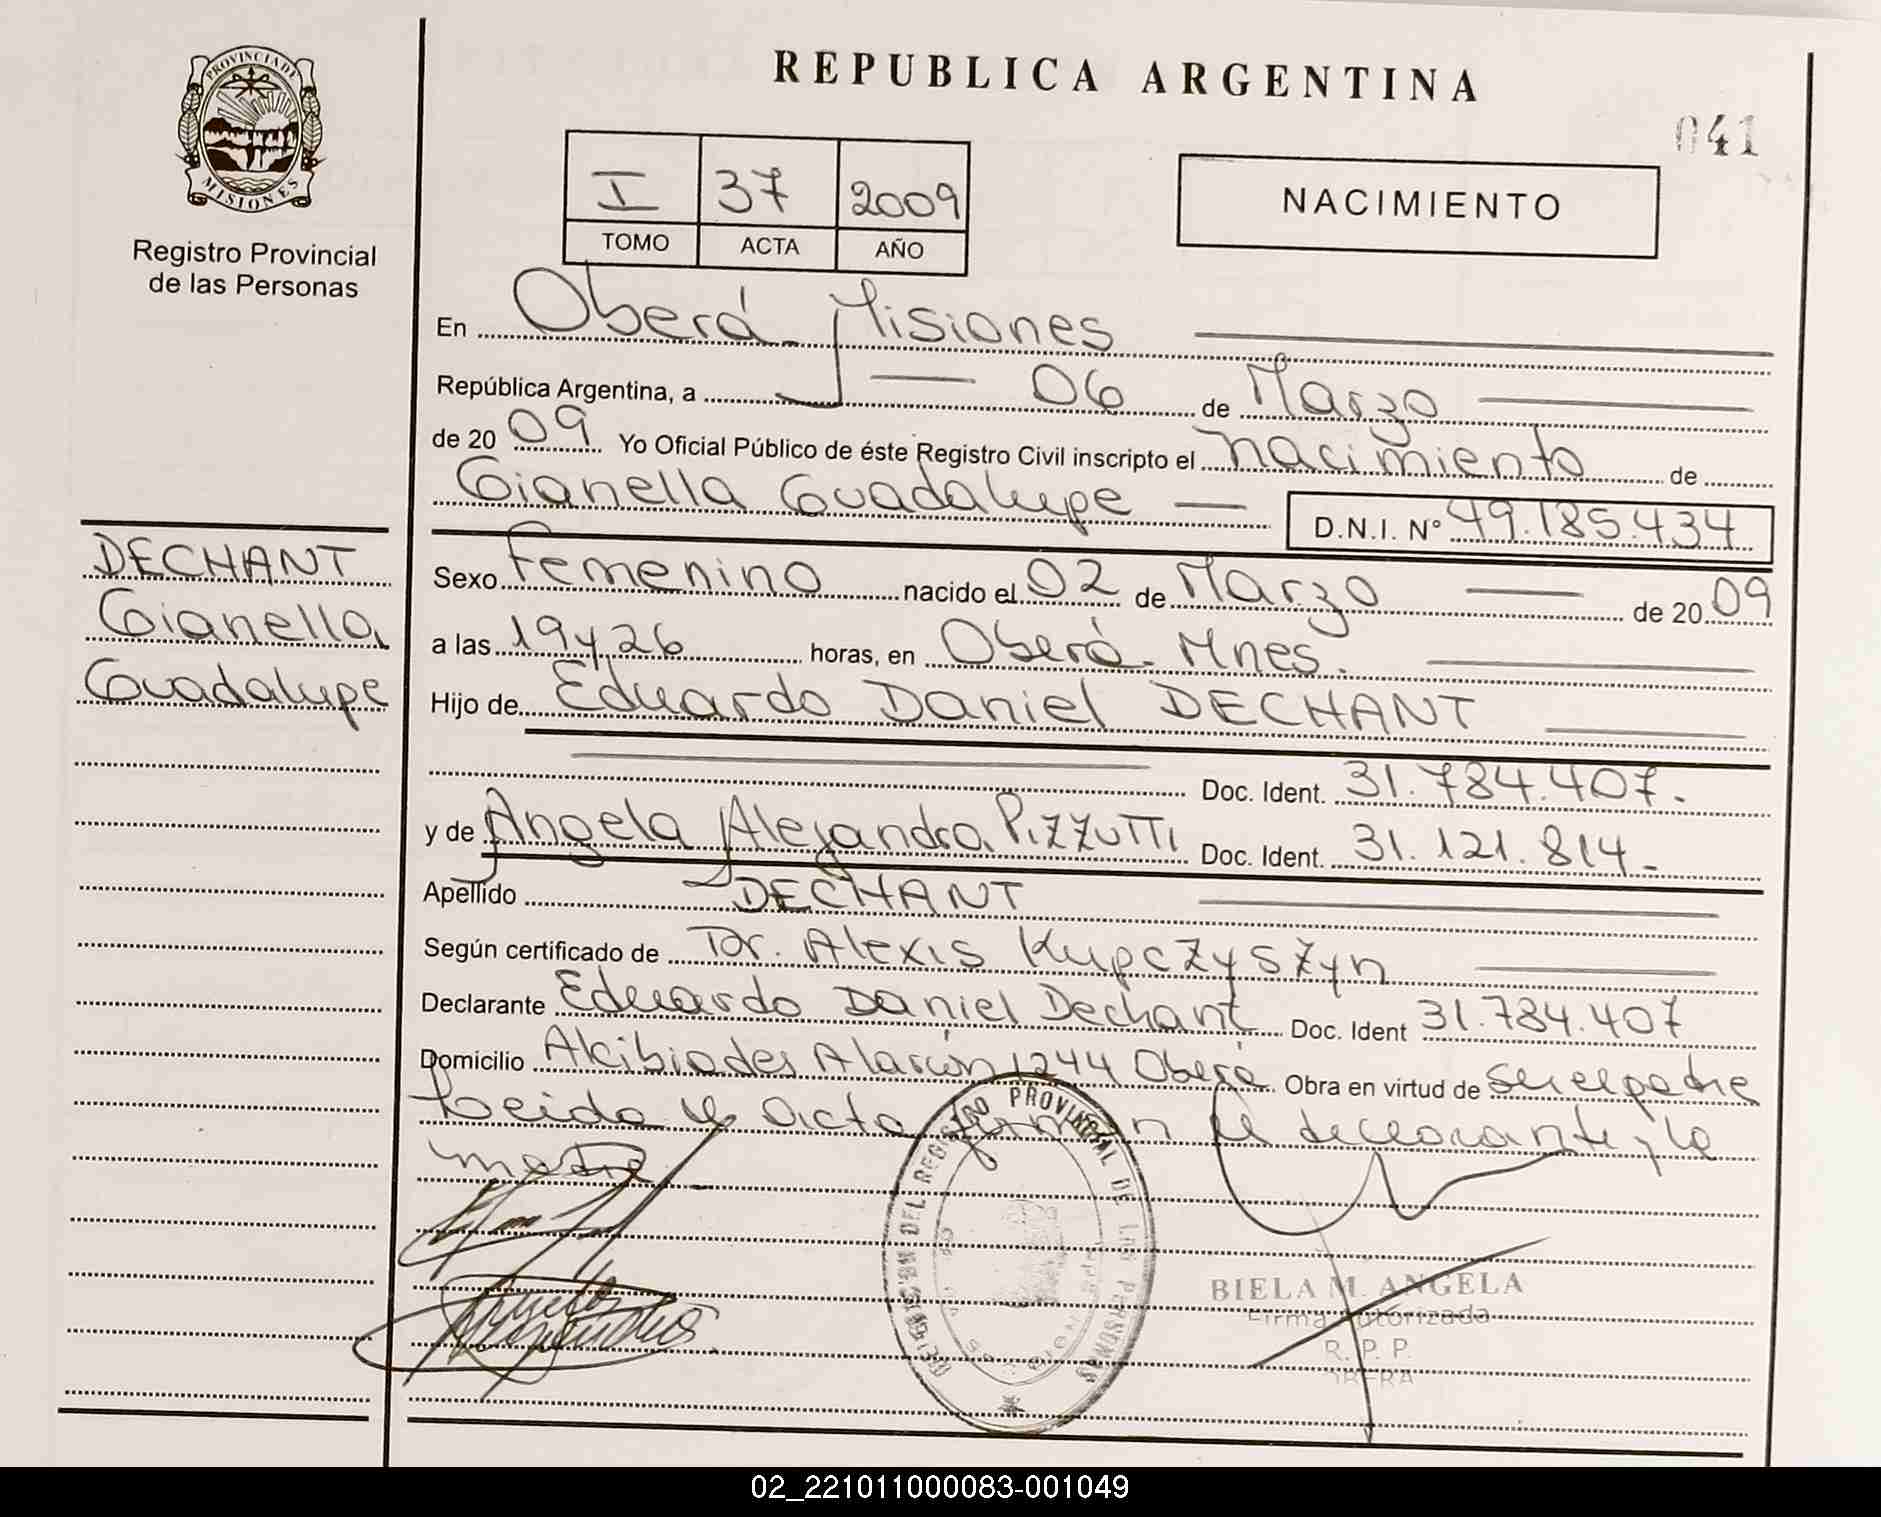 REPUBLICA ARGENTINA
041
PROVINCIA DE
MISIONES
Registro Provincial
de las Personas
I 37 2009
TOMO ACTA AÑO
NACIMIENTO
En Oberá Misiones
República Argentina, a 06 de Marzo
de 2009 Yo Oficial Público de éste Registro Civil inscripto el nacimiento de
Gianella Guadalupe D.N.I. Nº 49.185.434
DECHANT
Gianella
Guadalupe
Sexo Femenino nacido el 02 de Marzo de 2009
a las 19 y 26 horas, en Oberá - Mnes.
Hijo de Eduardo Daniel DECHANT
Doc. Ident. 31.784.407.-
y de Angela Alejandra PIZZUTTI Doc. Ident. 31.121.814.-
Apellido DECHANT
Según certificado de Dr. Alexis Kupczyszyn
Declarante Eduardo Daniel Dechant Doc. Ident 31.784.407
Domicilio Alcibiades Alarcón 1244 Oberá Obra en virtud de ser el padre
Leida el acta firman el declarante y la
madre
DEL REGISTRO PROVINCIAL DE LAS PERSONAS
BIELA M. ANGELA
Firma Autorizada
R. P. P.
OBERA
02_221011000083-001049